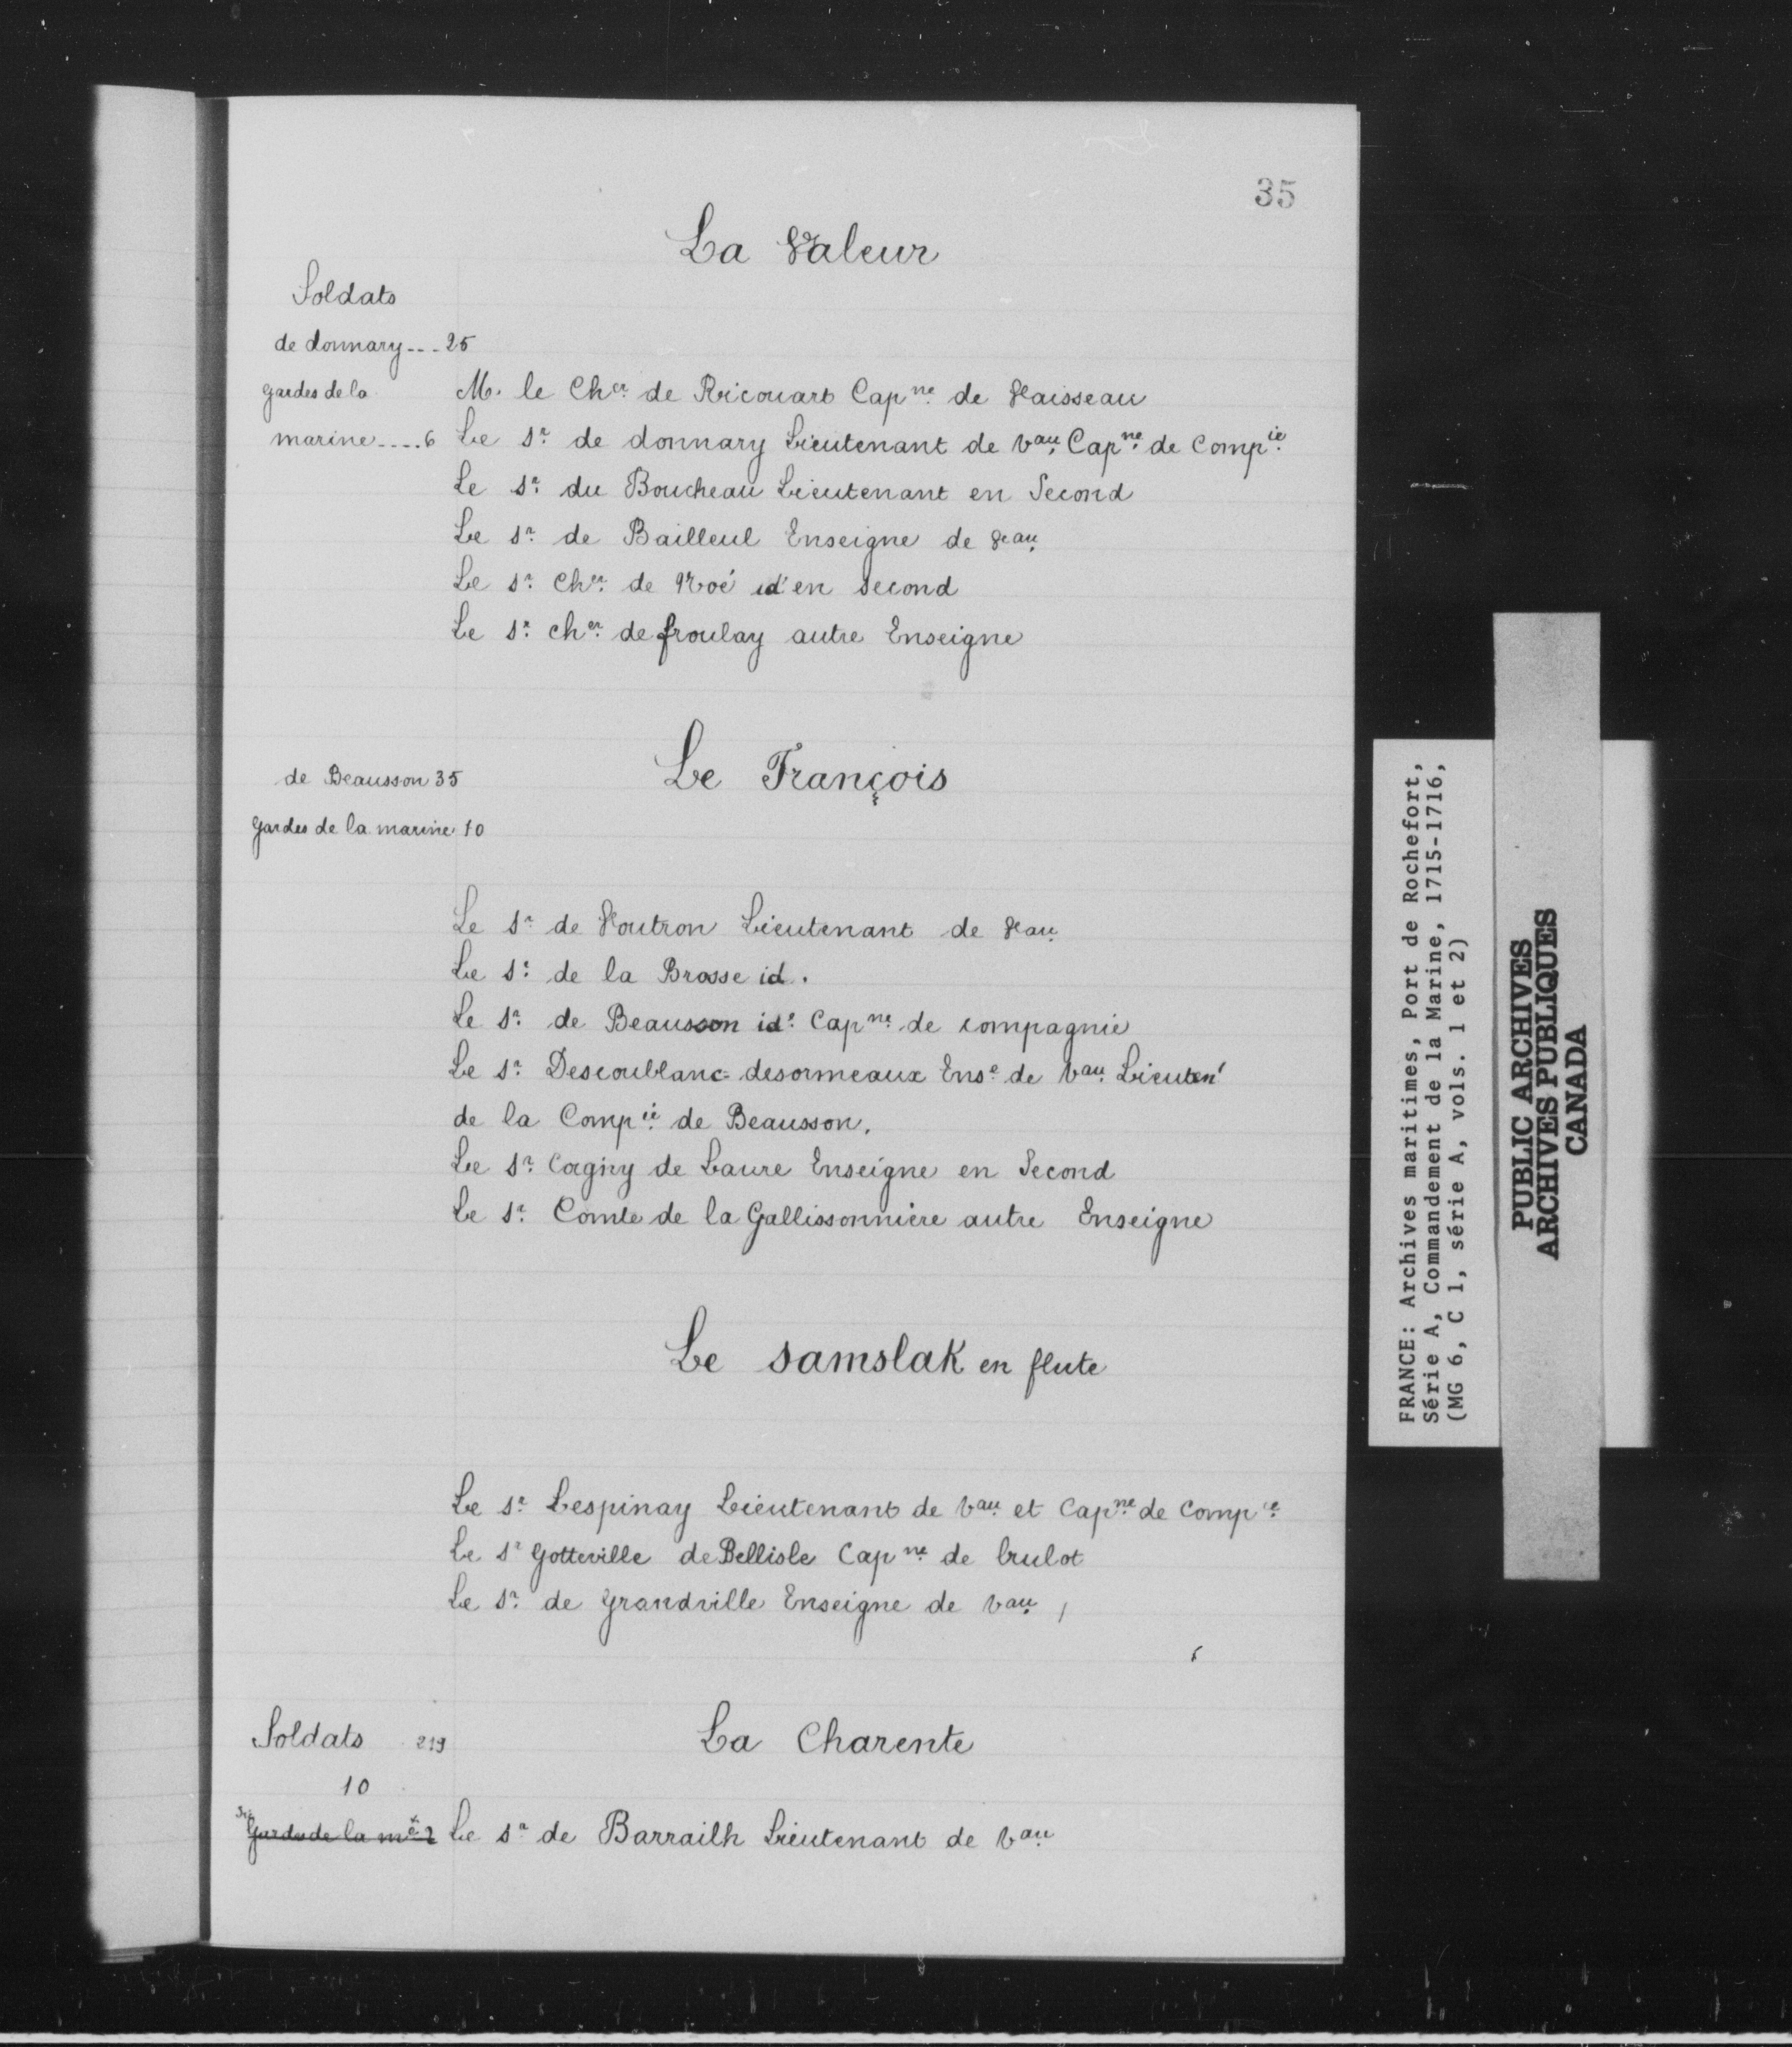 35
La Valeur
Soldats
de donnary --- 25
gardes de la
marine ---- 6
M. le Cher. de Ricouart Capne. de Vaisseau
Le Sr. de donnary Lieutenant de Vau. Capne. de Compie.
Le Sr. du Boucheau Lieutenant en Second
Le Sr. de Bailleul Enseigne de Vau.
Le Sr. Cher. de Noé id en second
Le Sr. cher. de froulay autre Enseigne
de Beausson 35
Le François
Gardes de la marine 10
Le Sr. de Voutron Lieutenant de Vau.
Le Sr. de la Brosse id.
Le Sr. de Beausson ide. Capne. de compagnie
Le Sr. Descoublanc-desormeaux Ense. de Vau. Lieutent
de la Compie. de Beausson.
Le Sr. Cagny de Laure Enseigne en Second
Le Sr. Comte de la Gallissonnière autre Enseigne
Le samslak en flute
Le Sr. Lespinay Lieutenant de Vau. et Capne. de Compie.
Le Sr. Gotteville de Bellisle Capne. de brulot
Le Sr. de Grandville Enseigne de Vau.
Soldats 219
La Charente
10
Gardes de la me. 2
Le Sr. de Barrailh Lieutenant de Vau.
FRANCE: Archives maritimes, Port de Rochefort,
Série A, Commandement de la Marine, 1715-1716,
(MG 6, C 1, série A, vols. 1 et 2)
PUBLIC ARCHIVES
ARCHIVES PUBLIQUES
CANADA